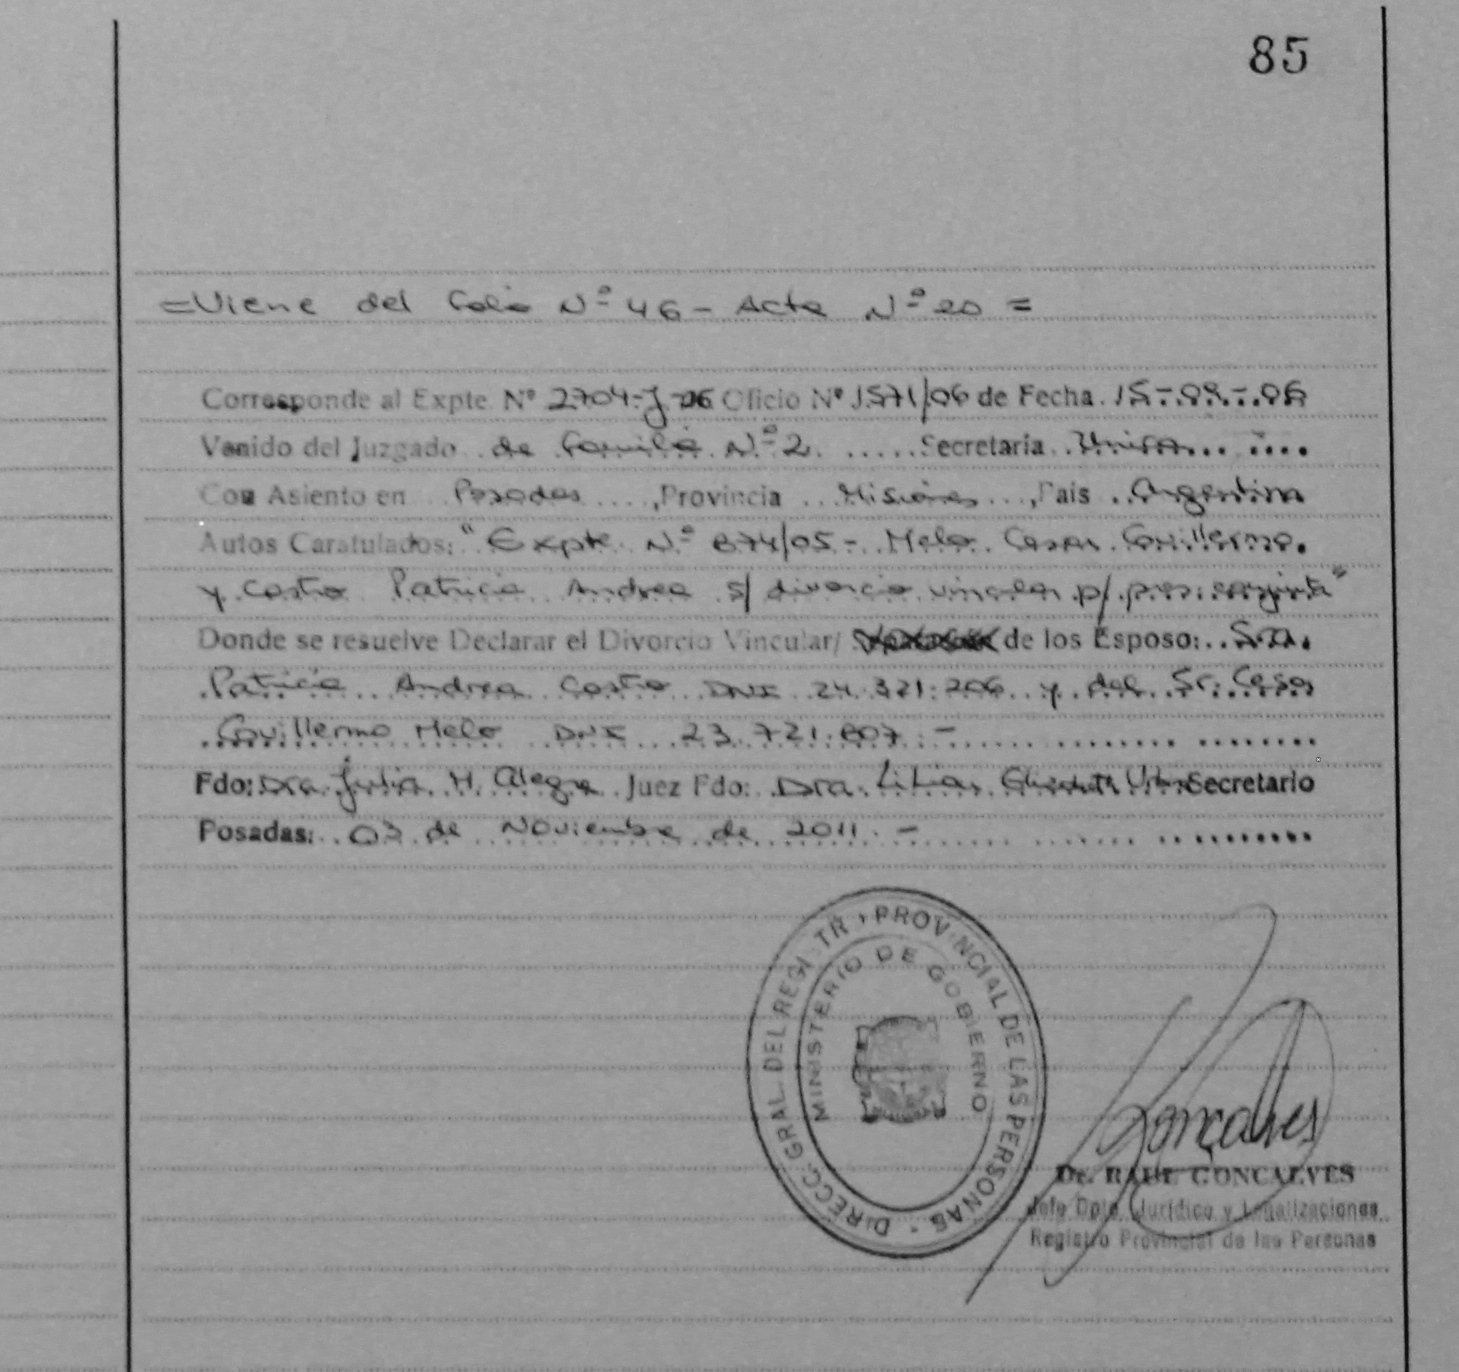 85
=Viene del Folio Nº 46 - Acta Nº 20 =
Corresponde al Expte. Nº 2704-J-06 Oficio Nº 1571/06 de Fecha 15-.09.-.06
Venido del Juzgado de Familia Nº 2 Secretaria Unica
Con Asiento en Posadas, Provincia Misiones, País Argentina
Autos Caratulados: "Expte. Nº 874/05 - Melo Cesar Guillermo
y Castro Patricia Andrea s/ divorcio vincular p/ pres. conjunta"
Donde se resuelve Declarar el Divorcio Vincular/ de los Esposo: Sra.
Patricia Andrea Castro DNI 24.321.206 y del Sr. Cesar
Guillermo Melo DNI 23.721.807.-
Fdo: Dra. Julia H. Alegre Juez Fdo: Dra. Lilian Secretario
Posadas: 03 de Noviembre de 2011.-
DIRECC. GRAL. DEL REGISTR. PROVINCIAL DE LAS PERSONAS
MINISTERIO DE GOBIERNO
Goncalves
Dr. RAUL GONCALVES
Jefe Dpto. Jurídico y Legalizaciones
Registro Provincial de las Personas